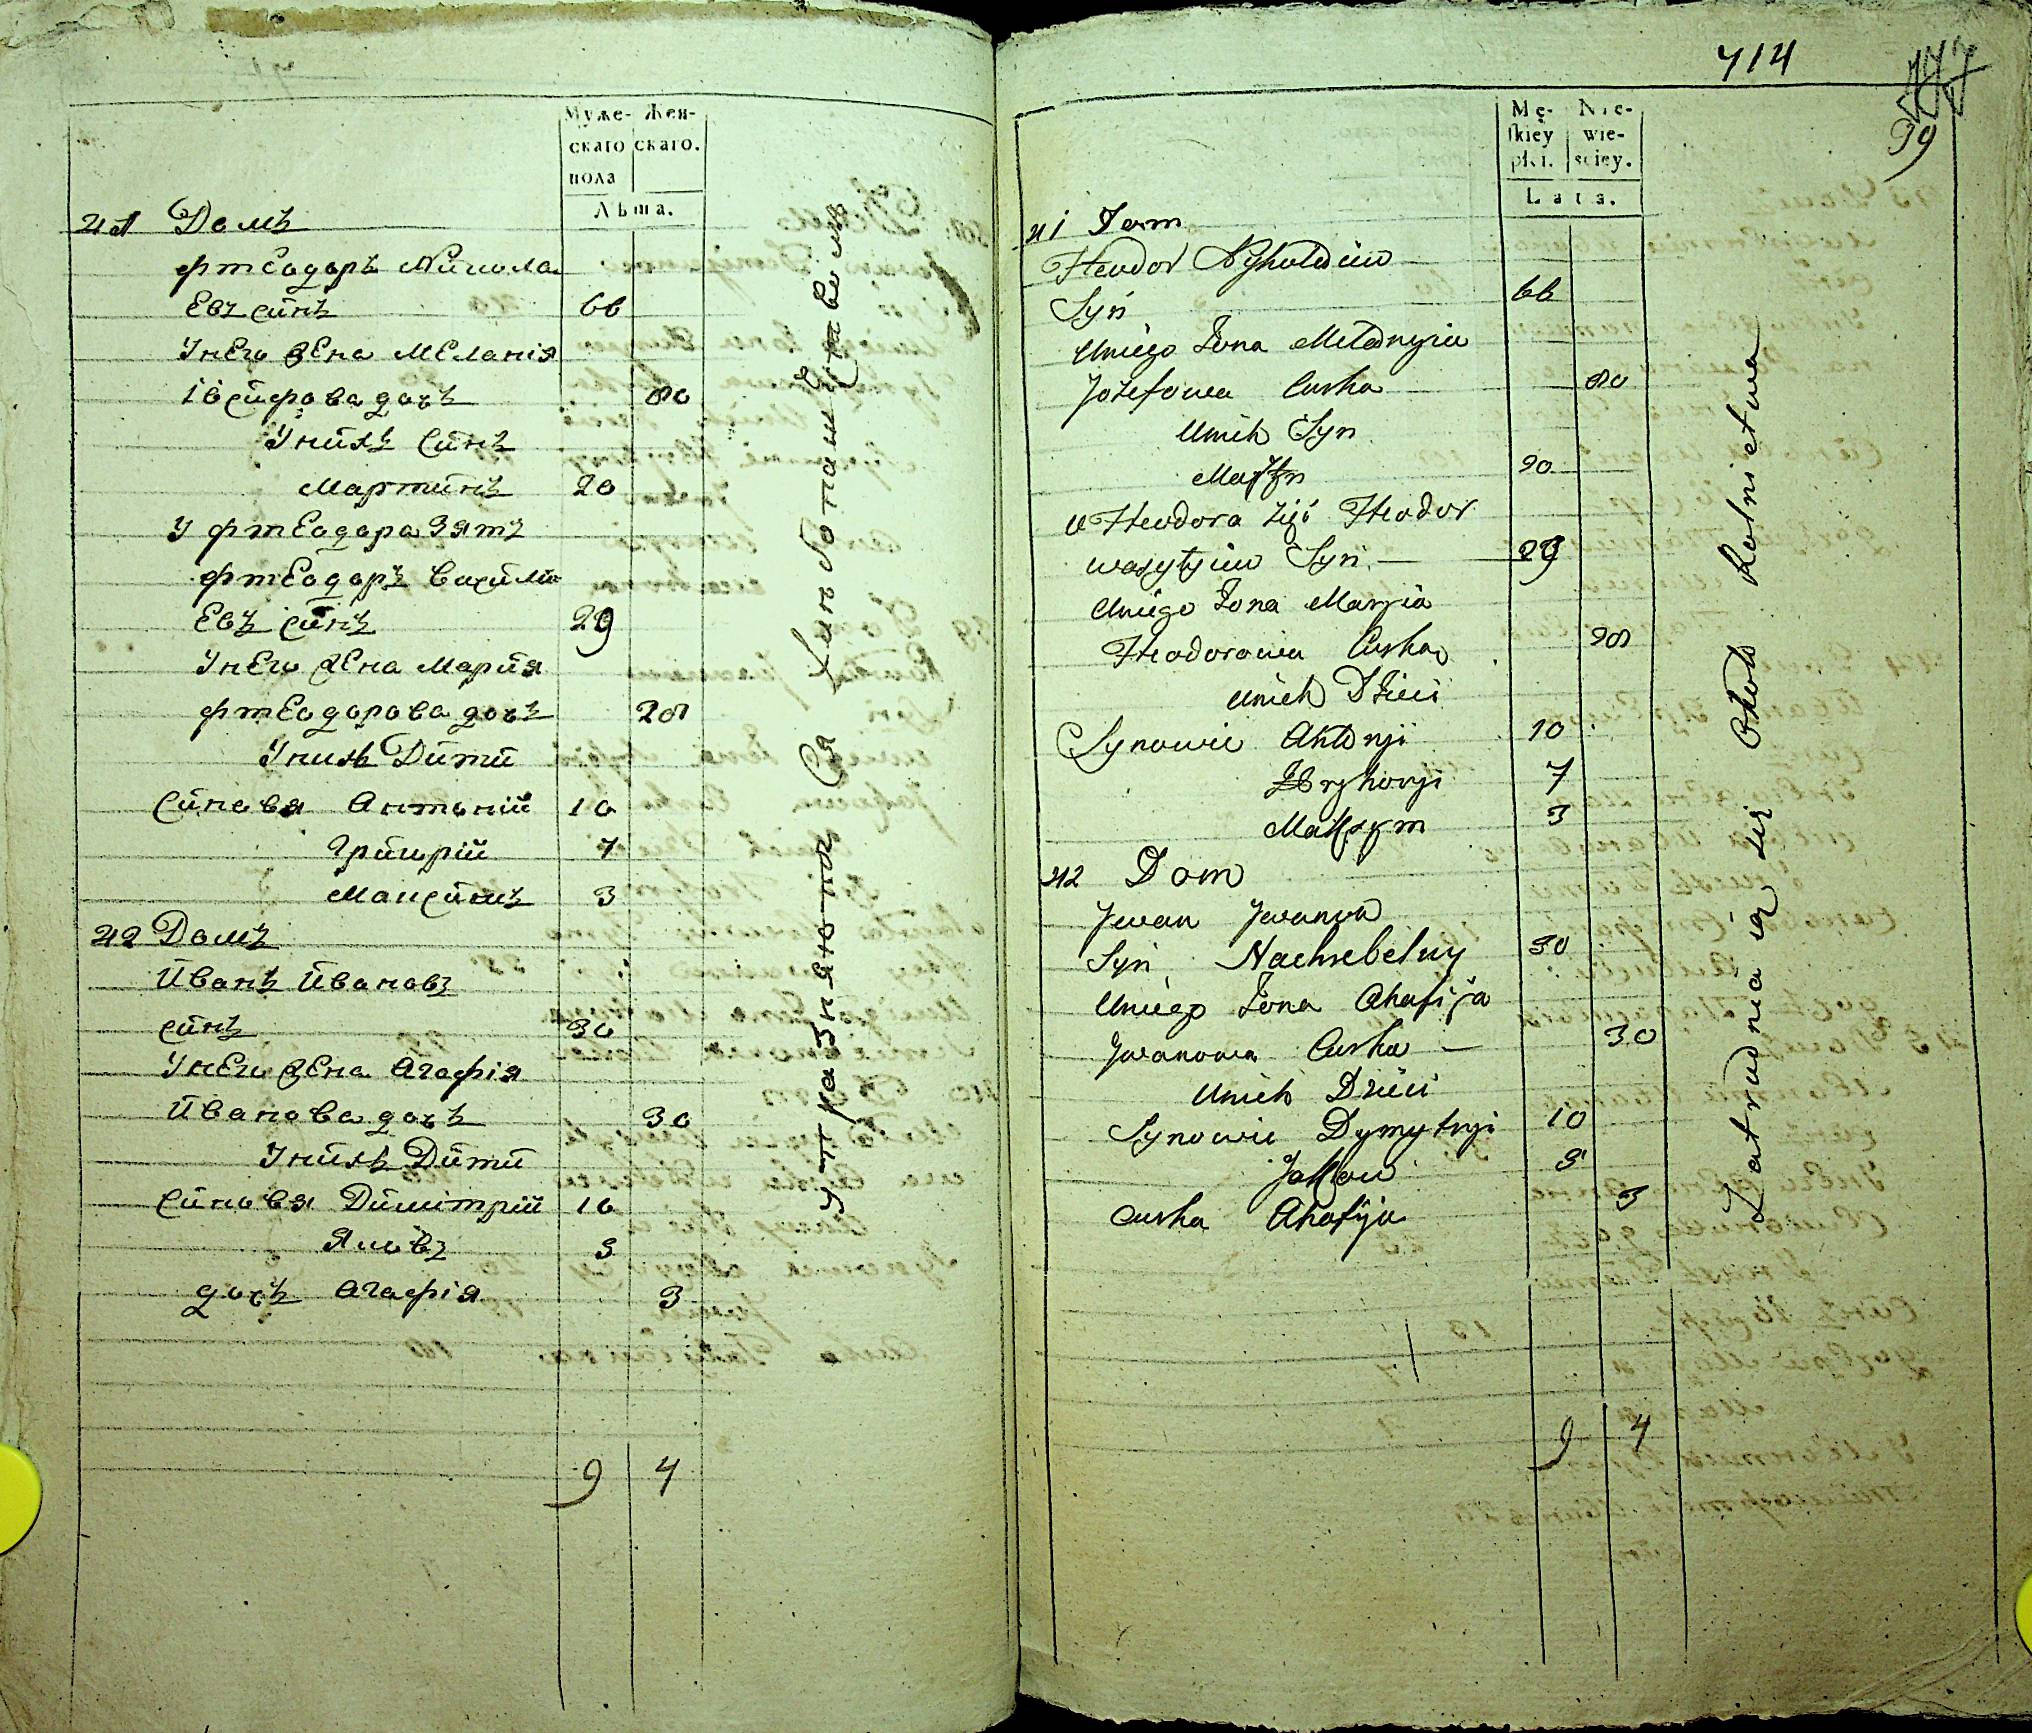 Муже- Жен-
скаго скаго.
пола
Лѣта.
41 Домъ
Фтеодоръ Никола
евъ синъ 66
У него жена Меланія
Іосифова дочъ 80
У нихъ синъ
Мартинъ 20
У Фтеодора зять
Фтеодоръ Васили
евъ синъ 29
У него жена Мария
Фтеодорова дочъ 28
У нихъ Дити
Синовя Антоній 10
Григорій 7
Максимъ 3
42 Домъ
Иванъ Ивановъ
синъ 30
У него жена Агафія
Иванова дочъ 30
У нихъ Дити
Синовя Димітрій 10
Яковъ 5
дочъ Агафія 3
9 4
714
99
Mę- Nie-
skiey wie-
płci. sciey.
Lata.
41 Dom
Fteodor Nykołaiw
Syn 66
Uniego Żona Mełanyia
Jozefowa Curka 80
Unich Syn
Martyn 20
U Fteodora Zięć Fteodor
Wasylyiw Syn 29
Uniego Żona Maryia
Fteodorowa Curka 28
Unich Dzieci
Synowie Antonyi 10
Hryhoryi 7
Maksym 3
42 Dom
Jwan Jwanow
Syn Nachrebelny 30
Uniego Żona Ahafija
Jwanowa Curka 30
Unich Dzieci
Synowie Dymytryi 10
Jakow 5
Curka Ahafija 3
9 4
Zatrudniaią się Około Rolnictwa